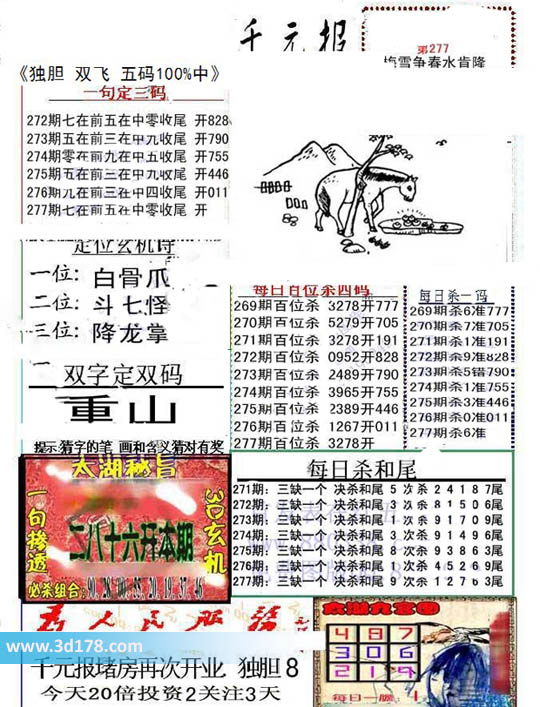 千元报
第277
梅雪争春水肯隆
《独胆 双飞 五码100%中》
一句定三码
272期七在前五在中零收尾 开828
273期五在前三在中九收尾 开790
274期零在前九在中五收尾 开755
275期五在前三在中九收尾 开446
276期九在前三在中四收尾 开011
277期七在前五在中零收尾 开
定位玄机诗
一位: 白骨爪
二位: 斗七怪
三位: 降龙掌
双字定双码
重山
提示:猜字的笔 画和含义猜对有奖
每日百位杀四码
269期百位杀 3278开777
270期百位杀 5279开705
271期百位杀 3278开191
272期百位杀 0952开828
273期百位杀 2489开790
274期百位杀 3965开755
275期百位杀 2389开446
276期百位杀 1267开011
277期百位杀 3278开
每日杀一码
269期杀6准777
270期杀7准705
271期杀1准191
272期杀9准828
273期杀5错790
274期杀1准755
275期杀3准446
276期杀0准011
277期杀6准
太湖秘旨
一句掺透
3D玄机
二八十六开本期
必杀组合:
每日杀和尾
271期: 三缺一个 决杀和尾 5 次杀 2 4 1 8 7尾
272期: 三缺一个 决杀和尾 3 次杀 8 1 5 0 6尾
273期: 三缺一个 决杀和尾 7 次杀 9 1 7 0 9尾
274期: 三缺一个 决杀和尾 1 次杀 9 1 4 9 6尾
275期: 三缺一个 决杀和尾 8 次杀 9 3 8 6 3尾
276期: 三缺一个 决杀和尾 1 次杀 4 5 2 6 9尾
277期: 三缺一个 决杀和尾 9 次杀 1 2 7 6 3尾
为人民服务
www.3d178.com
千元报堵房再次开业 独胆 8
今天20倍投资2关注3天
太湖九宫图
4 8 7
3 0 6
2 1 9
每日一胆 1